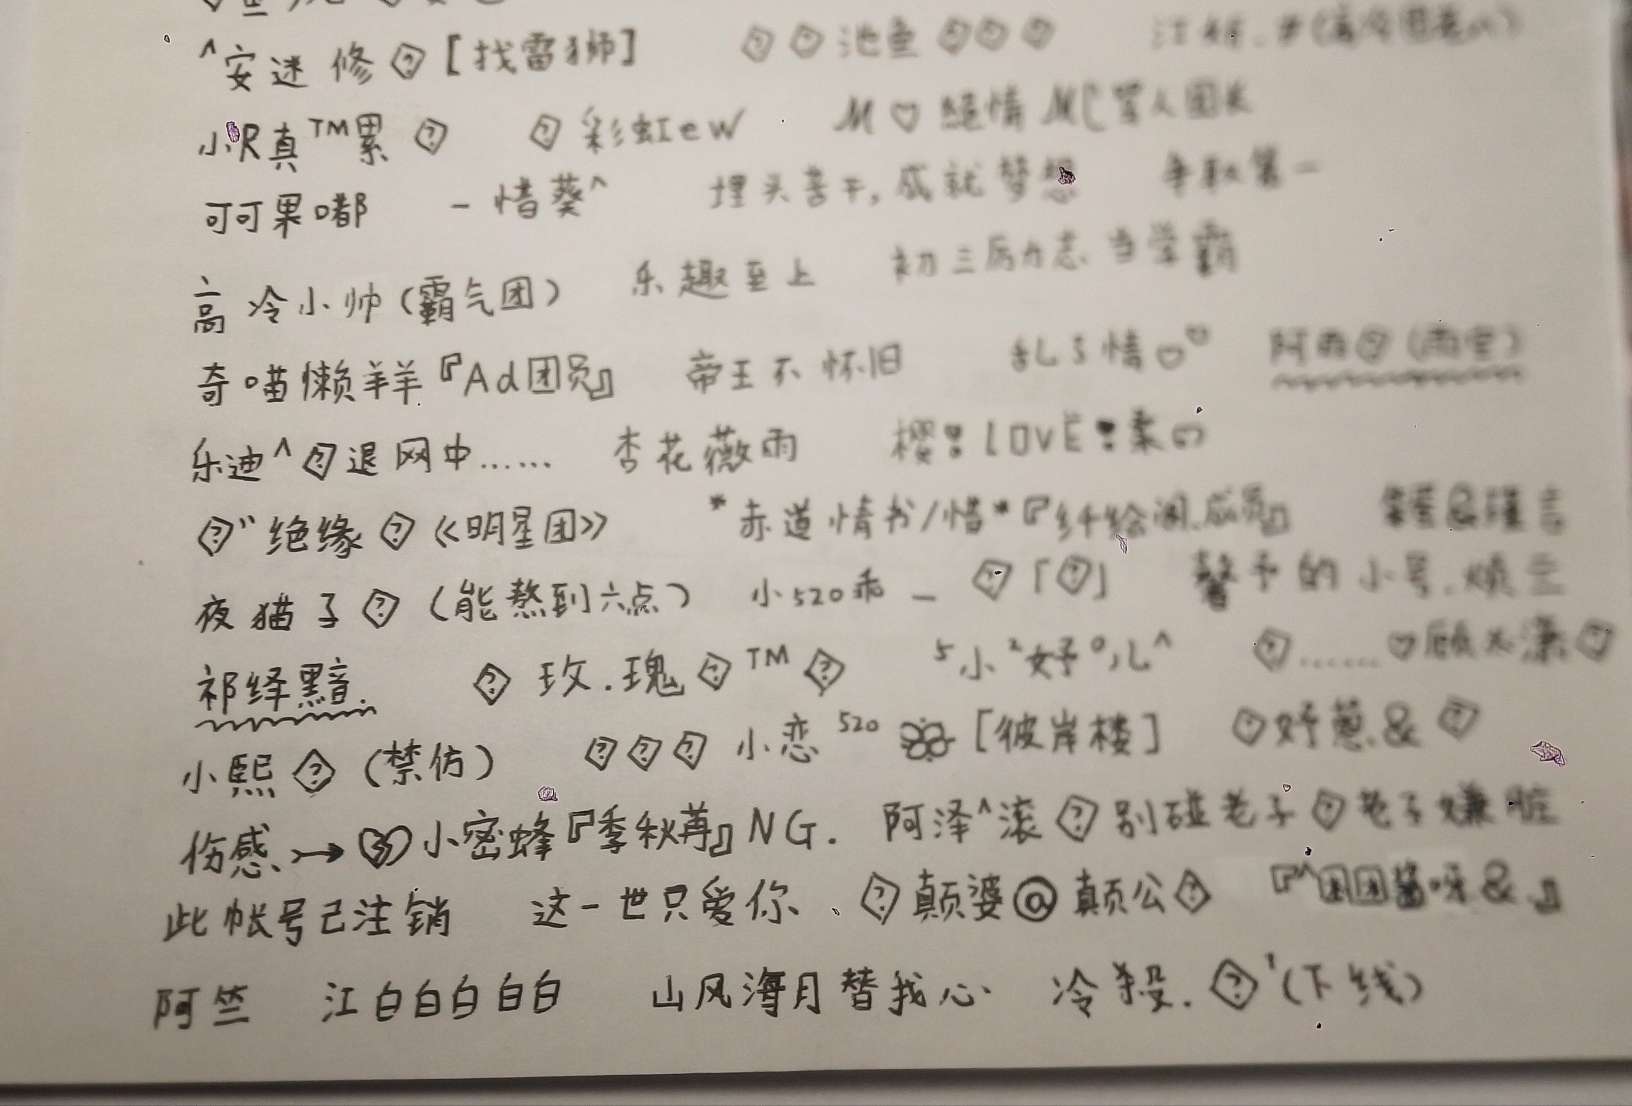 ^安迷修�[找雷狮] ��池鱼���
小R真™累� �彩虹ew M♡绝情MC 军人团长
可可果嘟 -惜葵^ 埋头苦干,成就梦想 争取第一
高冷小帅(霸气团) 乐趣至上 初三厉力志.当学霸
奇喵懒羊羊『Ad团员』 帝王不怀旧 乱5情♡♡ 阿雨�(雨空)
乐迪^�退网中…… 杏花薇雨 樱❣LOVE❣柔
�"绝缘�《明星团》 *赤道情书/惜*
夜猫子�(能熬到六点) 小520乖_ �「�」 馨予的小号.
祁绎黯. �玫.瑰�™� ⁵小²好⁰儿^ �……♡顾
小熙�(禁仿) ���小恋⁵²⁰ [彼岸楼] ♡妤葱.&�
伤感、→小密蜂『季秋苒』NG. 阿泽^滚�别碰老子�老子嫌脏
此帐号已注销 这一世只爱你、 、�颠婆@颠公� 『^团团酱呀&.』
阿竺 江白白白白白 山风海月替我心· 冷殺.�'(下线)